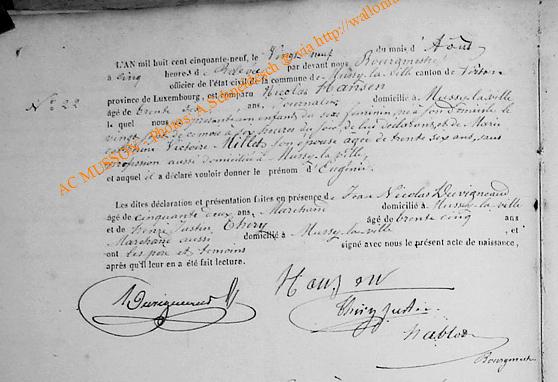 L'AN mil huit cent cinquante-neuf, le Vingt neuf du mois d'Août
à cinq heures de par devant nous Bourgmestre
officier de l'état civil de la commune de Mussy-la-ville canton de Virton
province de Luxembourg, est comparu Nicolas Hansen
N° 22
âgé de trente ans, Journalier domicilié à Mussy-la-ville
lequel nous a présenté un enfant du sexe féminin, né à son domicile le
vingt de ce mois à six heures du soir, de lui déclarant, et de Marie
Victoire Millet, son épouse agée de trente six ans, sans
profession aussi domicilié à Mussy-la-ville,
et auquel il a déclaré vouloir donner le prénom d'Eugénie.
Les dites déclaration et présentation faites en présence de Jean Nicolas Duvigneaud
âgé de cinquante deux ans, Marchand domicilié à Mussy-la-ville
et de Henri Justin Thiry âgé de trente cinq ans
Marchand aussi domicilié à Mussy-la-ville, et
ont les père et témoins signé avec nous le présent acte de naissance,
après qu'il leur en a été fait lecture.
Hansen
Thiry Justin
Bourgmestre
AC MUSSON - Photos: A Steigedesch @ via http://wallonia